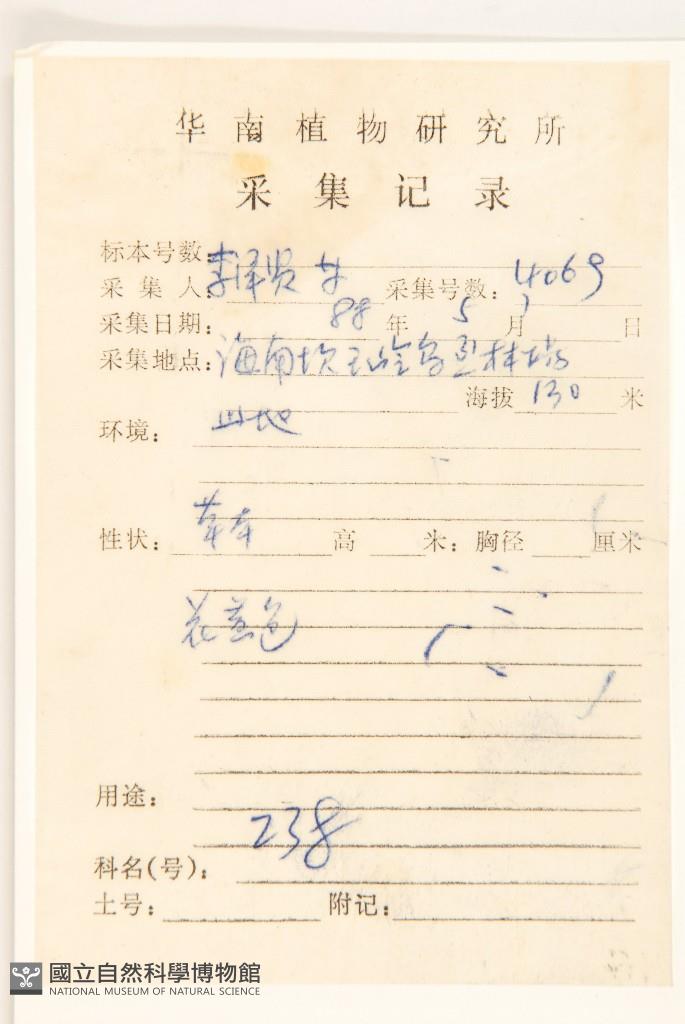 华南植物研究所
采集记录
标本号数:
采集人: 李泽贤 等 采集号数: 4069
采集日期: 88 年 5 月 日
采集地点: 海南坝王岭 林场
海拔 130 米
环境: 山地
性状: 草本 高 米: 胸径 厘米
花蓝色
用途:
238
科名(号):
土号: 附记:
國立自然科學博物館
NATIONAL MUSEUM OF NATURAL SCIENCE